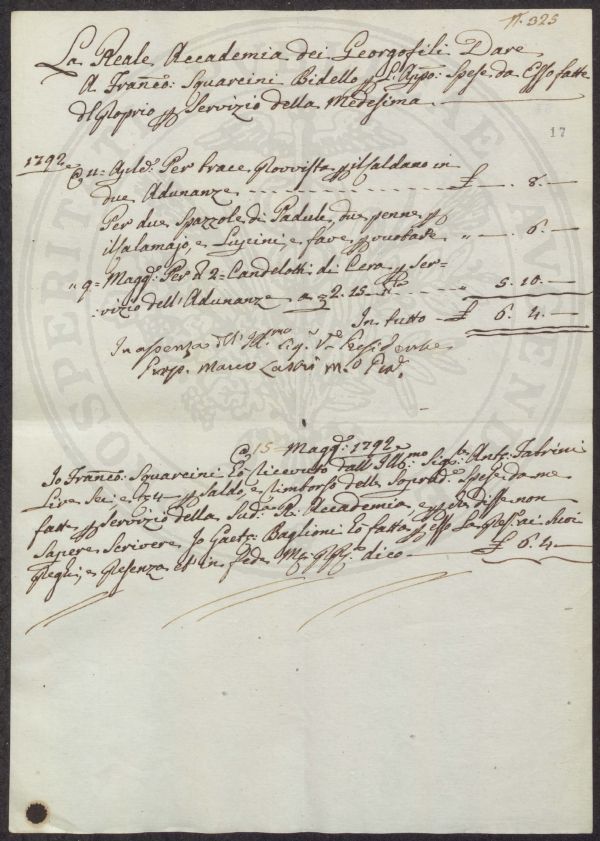 N. 325
La Reale Accademia dei Georgofili Dare
A Franco: Squarcini Bidello p Spese da Esso fatte
del Proprio p Servizio della Medesima
17
1792
Per brace provvista p il Caldano in
due Adunanze £ —. 8. —
Per due Spazzole di Padule, due penne p
il Calamajo, e Lucini, e fave p votare " —. 6. —
" 9 Magg: Per £ 2 Candelotti di Cera p Ser-
vizio dell'Adunanze a 2. 15. " 5. 10. —
In tutto £ 6. 4. —
In assenza dell' Ill:mo Sig:e V:e Presidente
Marco Lastri
15 Magg: 1792
Io Franco: Squarcini ho ricevuto dall' Ill:mo Sig: Ant: Fabrini
Lire Sei, e 4 p saldo, e rimborso delle Soprad: Spese da me
fatte p Servizio della Sud:a R: Accademia, e p che disse non
Sapere Scrivere Io Gaet: Baglioni ho fatta p esso la pres: ai suoi
Preghi, e Presenza ed in fede M: pp: dico £ 6. 4. —